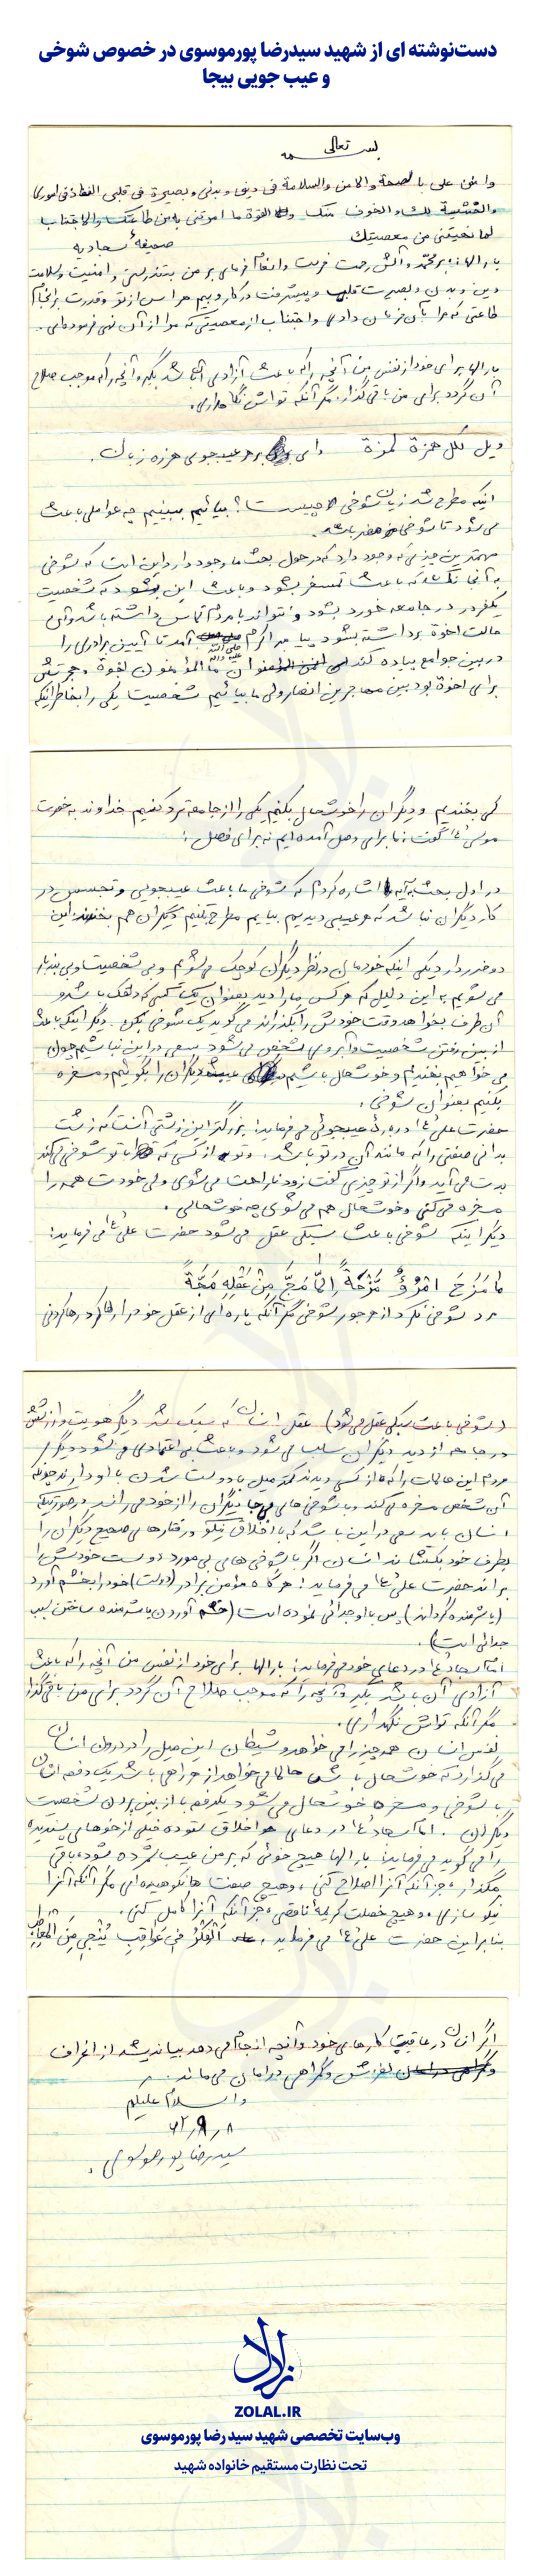 دست‌نوشته ای از شهید سیدرضا پورموسوی در خصوص شوخی
و عیب جویی بیجا
بسمه تعالی
وامنن علی بالصحة والامن والسلامة فی دینی و بدنی و بصیرة فی قلبی النفاذ فی اموری
والخشیة لک والخوف منک والقوة ما امرتنی به من طاعتک والاجتناب
لما نهیتنی من معصیتک
صحیفهٔ سجادیه
بارالها بر محمد و آلش رحمت فرست و انعام فرمای بر من بتندرستی و امنیت و سلامت
دین و بدن و بصیرت قلب و پیشرفت در کار و بیم هراس از تو و قدرت برانجام
طاعتی که مرا بآن فرمان دادی و اجتناب از معصیتی که مرا از آن نهی فرموده‌ای.
بارالها برای خود از نفس من آنچه را که باعث آزادی آن باشد بگیر و آنچه را که موجب صلاح
آن گردد برای من باقی گذار مگر آنکه تواش نگاه داری.
ویل لکل همزة لمزة وای بر هر عیبجوی هرزه زبان.
اینکه مطرح شد زیان شوخی چیست؟ بیائیم ببینیم چه عواملی باعث
می شود تا شوخی مضر باشد.
مهمترین چیزی که وجود دارد که در حول بحث ما وجود دارد این است که شوخی
به آنجا نکشد که باعث تمسخر بشود و باعث این شود که شخصیت
یکفر در جامعه خورد بشود و نتواند با مردم تماس داشته باشد و آن
حالت اخوة برداشته بشود پیامبر اکرم صلی الله علیه و آله آمد تا آیین برادری را
در بین جوامع پیاده کند انما المؤمنون اخوة و حرکتش
برای اخوة بود بین مهاجرین انصار ولی ما بیائیم شخصیت یکی را بخاطر اینکه
کمی بخندیم و دیگران را خوشحال بکنیم یکی را از جامعه ترد کنیم خداوند به حضرت
موسی (ع) گفت: ما برای وصل آمده ایم نه برای فصل:
در اول بحث به آیه اشاره کردم که شوخی ما باعث عیبجویی و تجسس در
کار دیگران نباشد که هر عیبی دیدیم بیایم مطرح بکنیم دیگران هم بخندند این
دو ضرر دارد یکی اینکه خودمان در نظر دیگران کوچک می شویم و بی شخصیت و بی بندبار
می شویم به این دلیل که هر کس ما را دید بعنوان یک کسی که دلقک باشد و
آن طرف بخواهد وقت خودش را بگذراند می گوید یک شوخی بکن. دیگر اینکه باعث
از بین رفتن شخصیت و آبروی شخص می شود سعی در این نباشیم چون
می خواهیم بخندیم و خوشحال باشیم عیب دیگران را بگوئیم و مسخره
بکنیم بعنوان شوخی.
حضرت علی (ع) درباره عیبجوئی می فرماید: بزرگتر این زشتی آنست که زشت
بدانی صفتی را که مانند آن در تو باشد. و تو از کسی که با تو شوخی می کند
بدت می آید و اگر از تو چیزی گفت زود ناراحت می شوی ولی خودت همه را
مسخره می کنی و خوشحال هم می شوی چه خوشحالی.
دیگر اینکه شوخی باعث سبکی عقل می شود حضرت علی (ع) می فرماید:
مٰا مَزَحَ امْرُؤٌ مَزْحَةً اِلّا مَجَّ مِنْ عَقْلِهِ مَجَّةً
مرد شوخی نکرد از هر جور شوخی مگر آنکه پاره ای از عقل خود را رها کرد رها کردنی
(شوخی باعث سبکی عقل می شود) عقل انسان که سبک شد دیگر هویت و ارزشش
در جامعه از دید دیگران سلب می شود و باعث بی اعتمادی می شود و دیگر
مردم این حالات را که از کسی دیدند کمتر میل به دوست شدن با او دارند چونکه
آن شخص مسخره می کند و با شوخی های بی جا دیگران را از خود می راند در صورتیکه
انسان باید سعی در این باشد که با اخلاق نیکو و رفتارهای صحیح دیگران را
بطرف خود بکشاند انسان اگر با شوخی های بی مورد دوست خودش را
براند حضرت علی (ع) می فرماید: هرگاه مؤمن برادر (دوست) خود را بخشم آورد
(یا شرمنده گرداند) پس با او جدائی نموده است (خشم آوردن یا شرمنده ساختن سبب
جدائی است).
امام سجاد (ع) در دعای خود می فرماید: بارالها برای خود از نفس من آنچه را که باعث
آزادی آن باشد بگیر و آنچه را که موجب صلاح آن گردد برای من باقی گذار
مگر آنکه تواش نگهداری.
نفس انسان همه چیز را می خواهد و شیطان این میل را در درون انسان
می گذارد که خوشحال باش حالا می خواهد از هر راهی باشد یک دفعه انسان
با شوخی و مسخره خوشحال می شود یکدفعه با از بین بردن شخصیت
دیگران. امام سجاد (ع) در دعای اخلاق ستوده خیلی از خوهای پسندیده
را می گوید می فرماید: بارالها هیچ خوئی که بر من عیب شمرده شود باقی
مگذار، جز آنکه آنرا اصلاح کنی، و هیچ صفت نکوهیده ای مگر آنکه آنرا
نیکو سازی، و هیچ خصلت کریمهٔ ناقصی، جز آنکه آنرا کامل کنی.
بنابراین حضرت علی (ع) می فرماید: اَلْفِکْرُ فِی عَوَاقِبِ یُنْجِی مِنَ الْمَعَاطِبِ
اگر انسان در عاقبت کارهای خود و آنچه انجام می دهد بیاندیشد از انحراف
لغزش و گمراهی در امان می ماند.
والسلام علیکم
۶۲/۹/۸
سیدرضا پورموسوی
زلال
ZOLAL.IR
وب‌سایت تخصصی شهید سید رضا پورموسوی
تحت نظارت مستقیم خانواده شهید